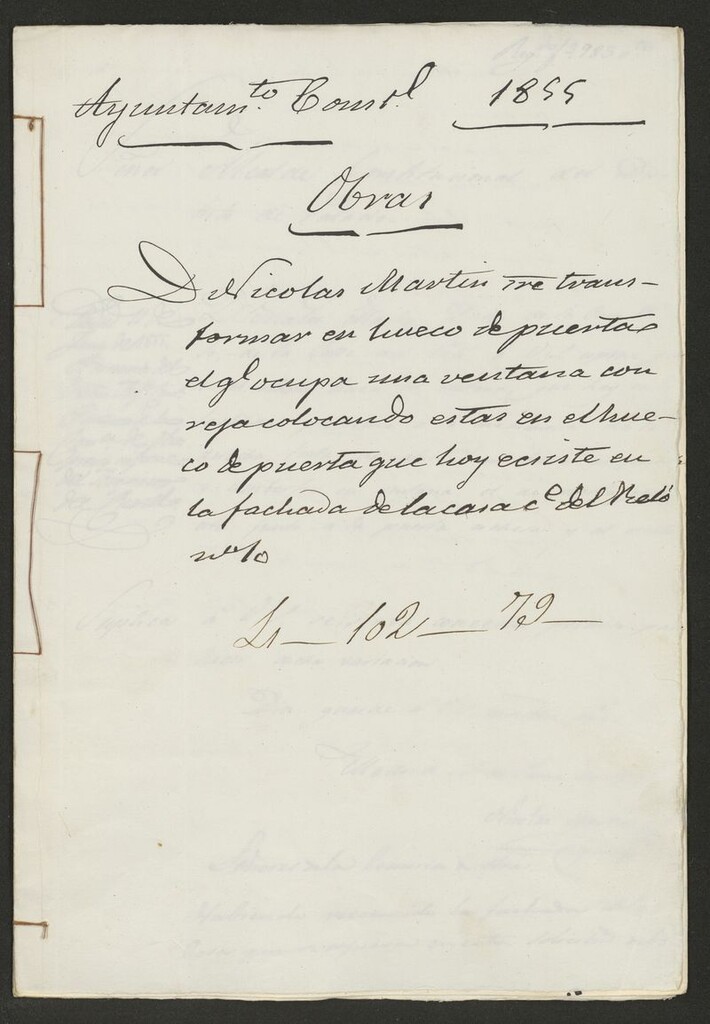 Ayuntam.to Const.l 1855
Obras
D Nicolas Martin sre trans-
formar en hueco de puerta
el q.l ocupa una ventana con
reja colocando estas en el hue-
co de puerta que hoy ecsiste en
la fachada de la casa c.e del Reló
n.o 10
102 — 79 —